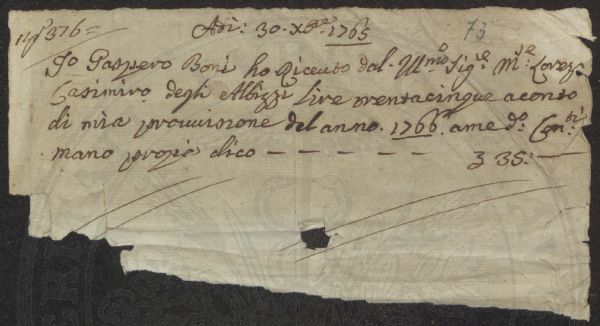 N° 376=
Adì: 30. Xbre 1765 73
Io Gaspero Boni ho Riceuto dal Illmo Sigre Mse Lorenzo
Casimiro degli Albizzi Lire trentacinque aconto
di mia provvisione del anno. 1766. ame do Conti
mano propia dico — — — — — 35: —